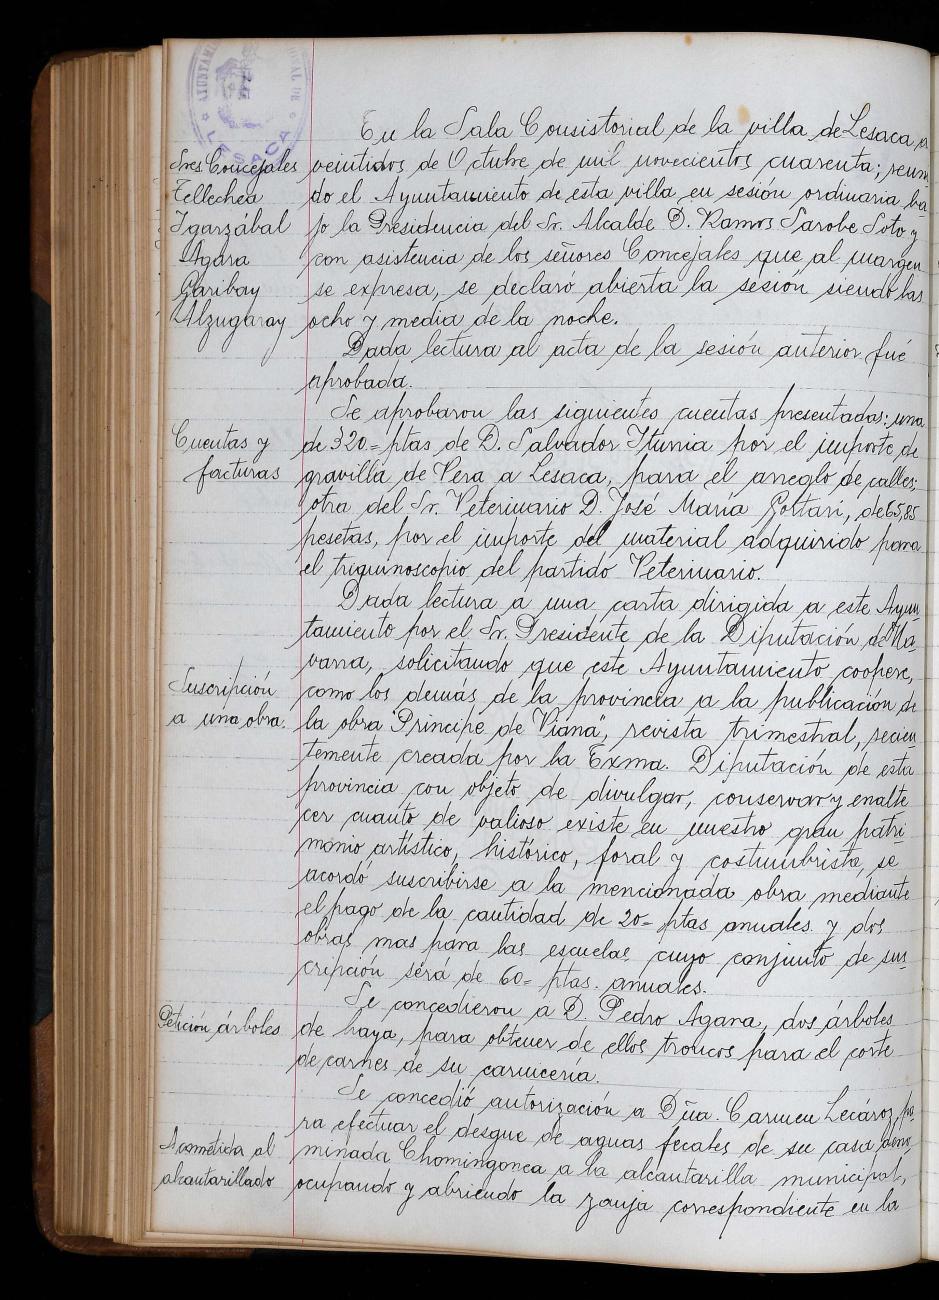 AYUNTAMI
LESACA
En la Sala Consistorial de la villa de Lesaca, a
Sres. Concejales
veintidos de Octubre de mil novecientos cuarenta; reuni
Tellechea
do el Ayuntamiento de esta villa en sesión ordinaria ba
Igarzábal
jo la Presidencia del Sr. Alcalde D. Ramos Sarobe Soto y
Agara
con asistencia de los señores Concejales que al margen
Garibay
se expresa, se declaro abierta la sesión siendo las
Alzugaray
ocho y media de la noche.
Dada lectura al acta de la sesión anterior fué
aprobada.
Se aprobaron las siguientes cuentas presentadas: una
Cuentas y
facturas
de 320= ptas de D. Salvador Iturria por el importe de
gravilla de Vera a Lesaca, para el arreglo de calles;
otra del Sr. Veterinario D. José María Goñtari, de 65,85
pesetas, por el importe del material adquirido para
el triquinoscopio del partido Veterinario.
Dada lectura a una carta dirigida a este Ayun
tamiento por el Sr. Presidente de la Diputación de Na-
varra, solicitando que este Ayuntamiento coopere,
Suscripción
a una obra.
como los demás de la provincia a la publicación de
la obra "Principe de Viana", revista trimestral, recien
temente creada por la Exma. Diputación de esta
provincia con objeto de divulgar, conservar y enalte
cer cuanto de valioso existe en nuestro gran patri
monio artístico, histórico, foral y costumbrista, se
acordó suscribirse a la mencionada obra mediante
el pago de la cantidad de 20= ptas anuales y dos
obras mas para las escuelas cuyo conjunto de sus-
cripción será de 60= ptas. anuales.
Petición árboles
Se concedieron a D. Pedro Agara, dos árboles
de haya, para obtener de ellos troncos para el corte
de carnes de su carniceria.
Se concedió autorización a Dña. Carmen Lecároz, pa
ra efectuar el desgue de aguas fecales de su casa deno
Acometida al
alcantarillado
minada Chomingonea a la alcantarilla municipal,
ocupando y abriendo la zanja correspondiente en la